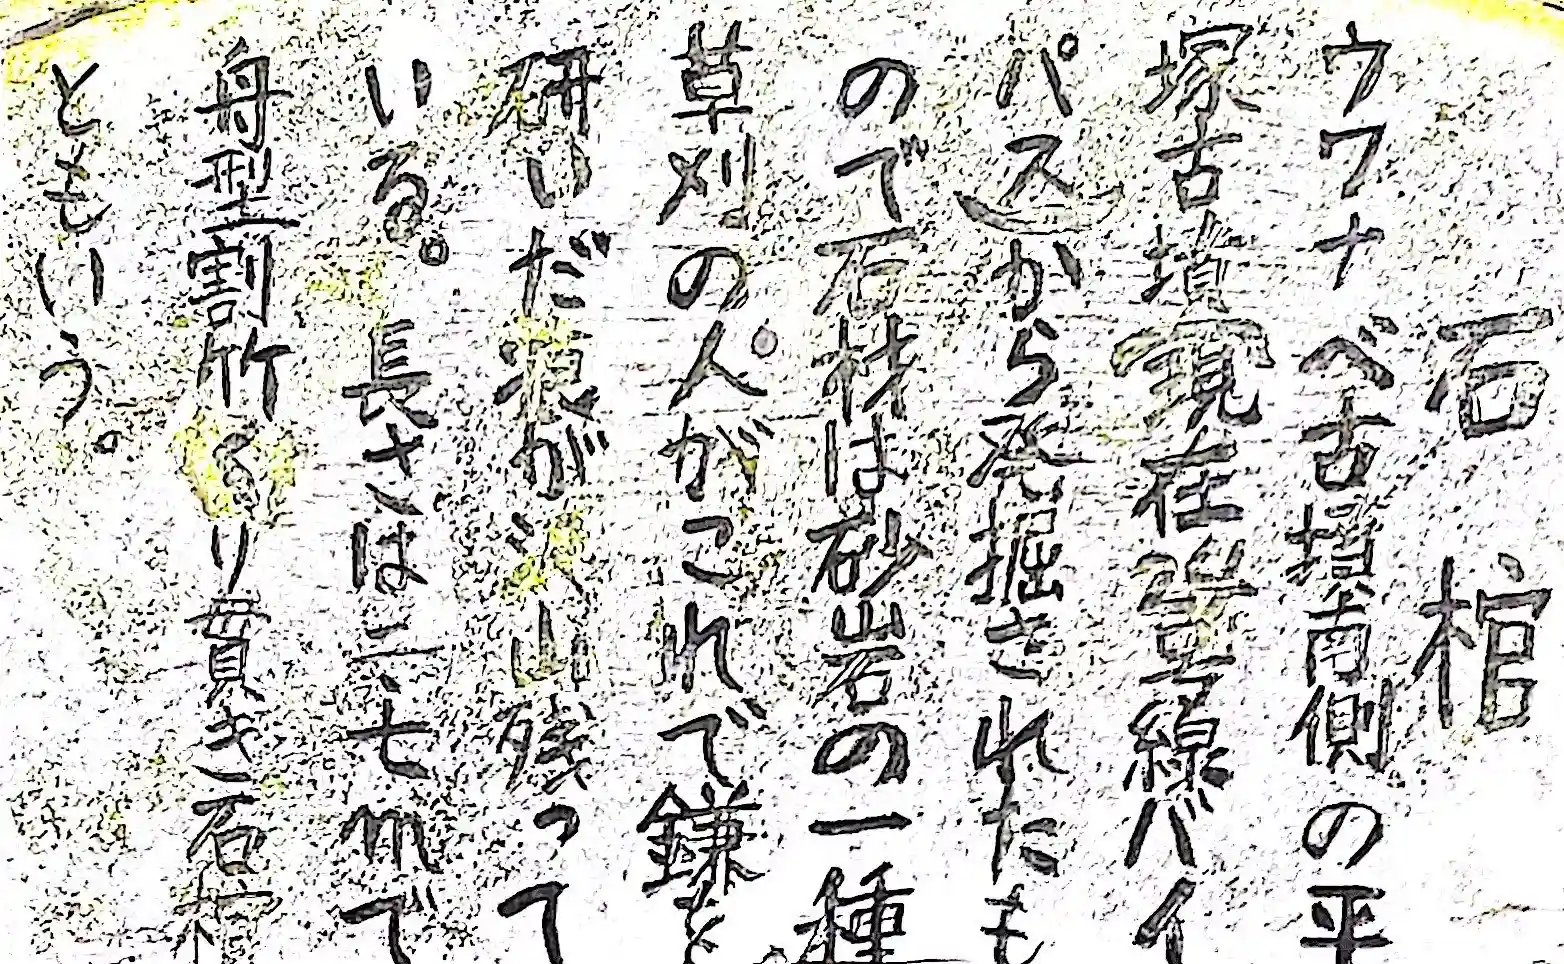 石棺
ウワナベ古墳南側の平
塚古墳(現在号線バイ
パス)から発掘されたも
ので石材は砂岩の一種。
草刈の人がこれで鎌を
研いだ痕が沢山残って
いる。長さは二.七mで
舟型割竹くり貫き石棺
ともいう。